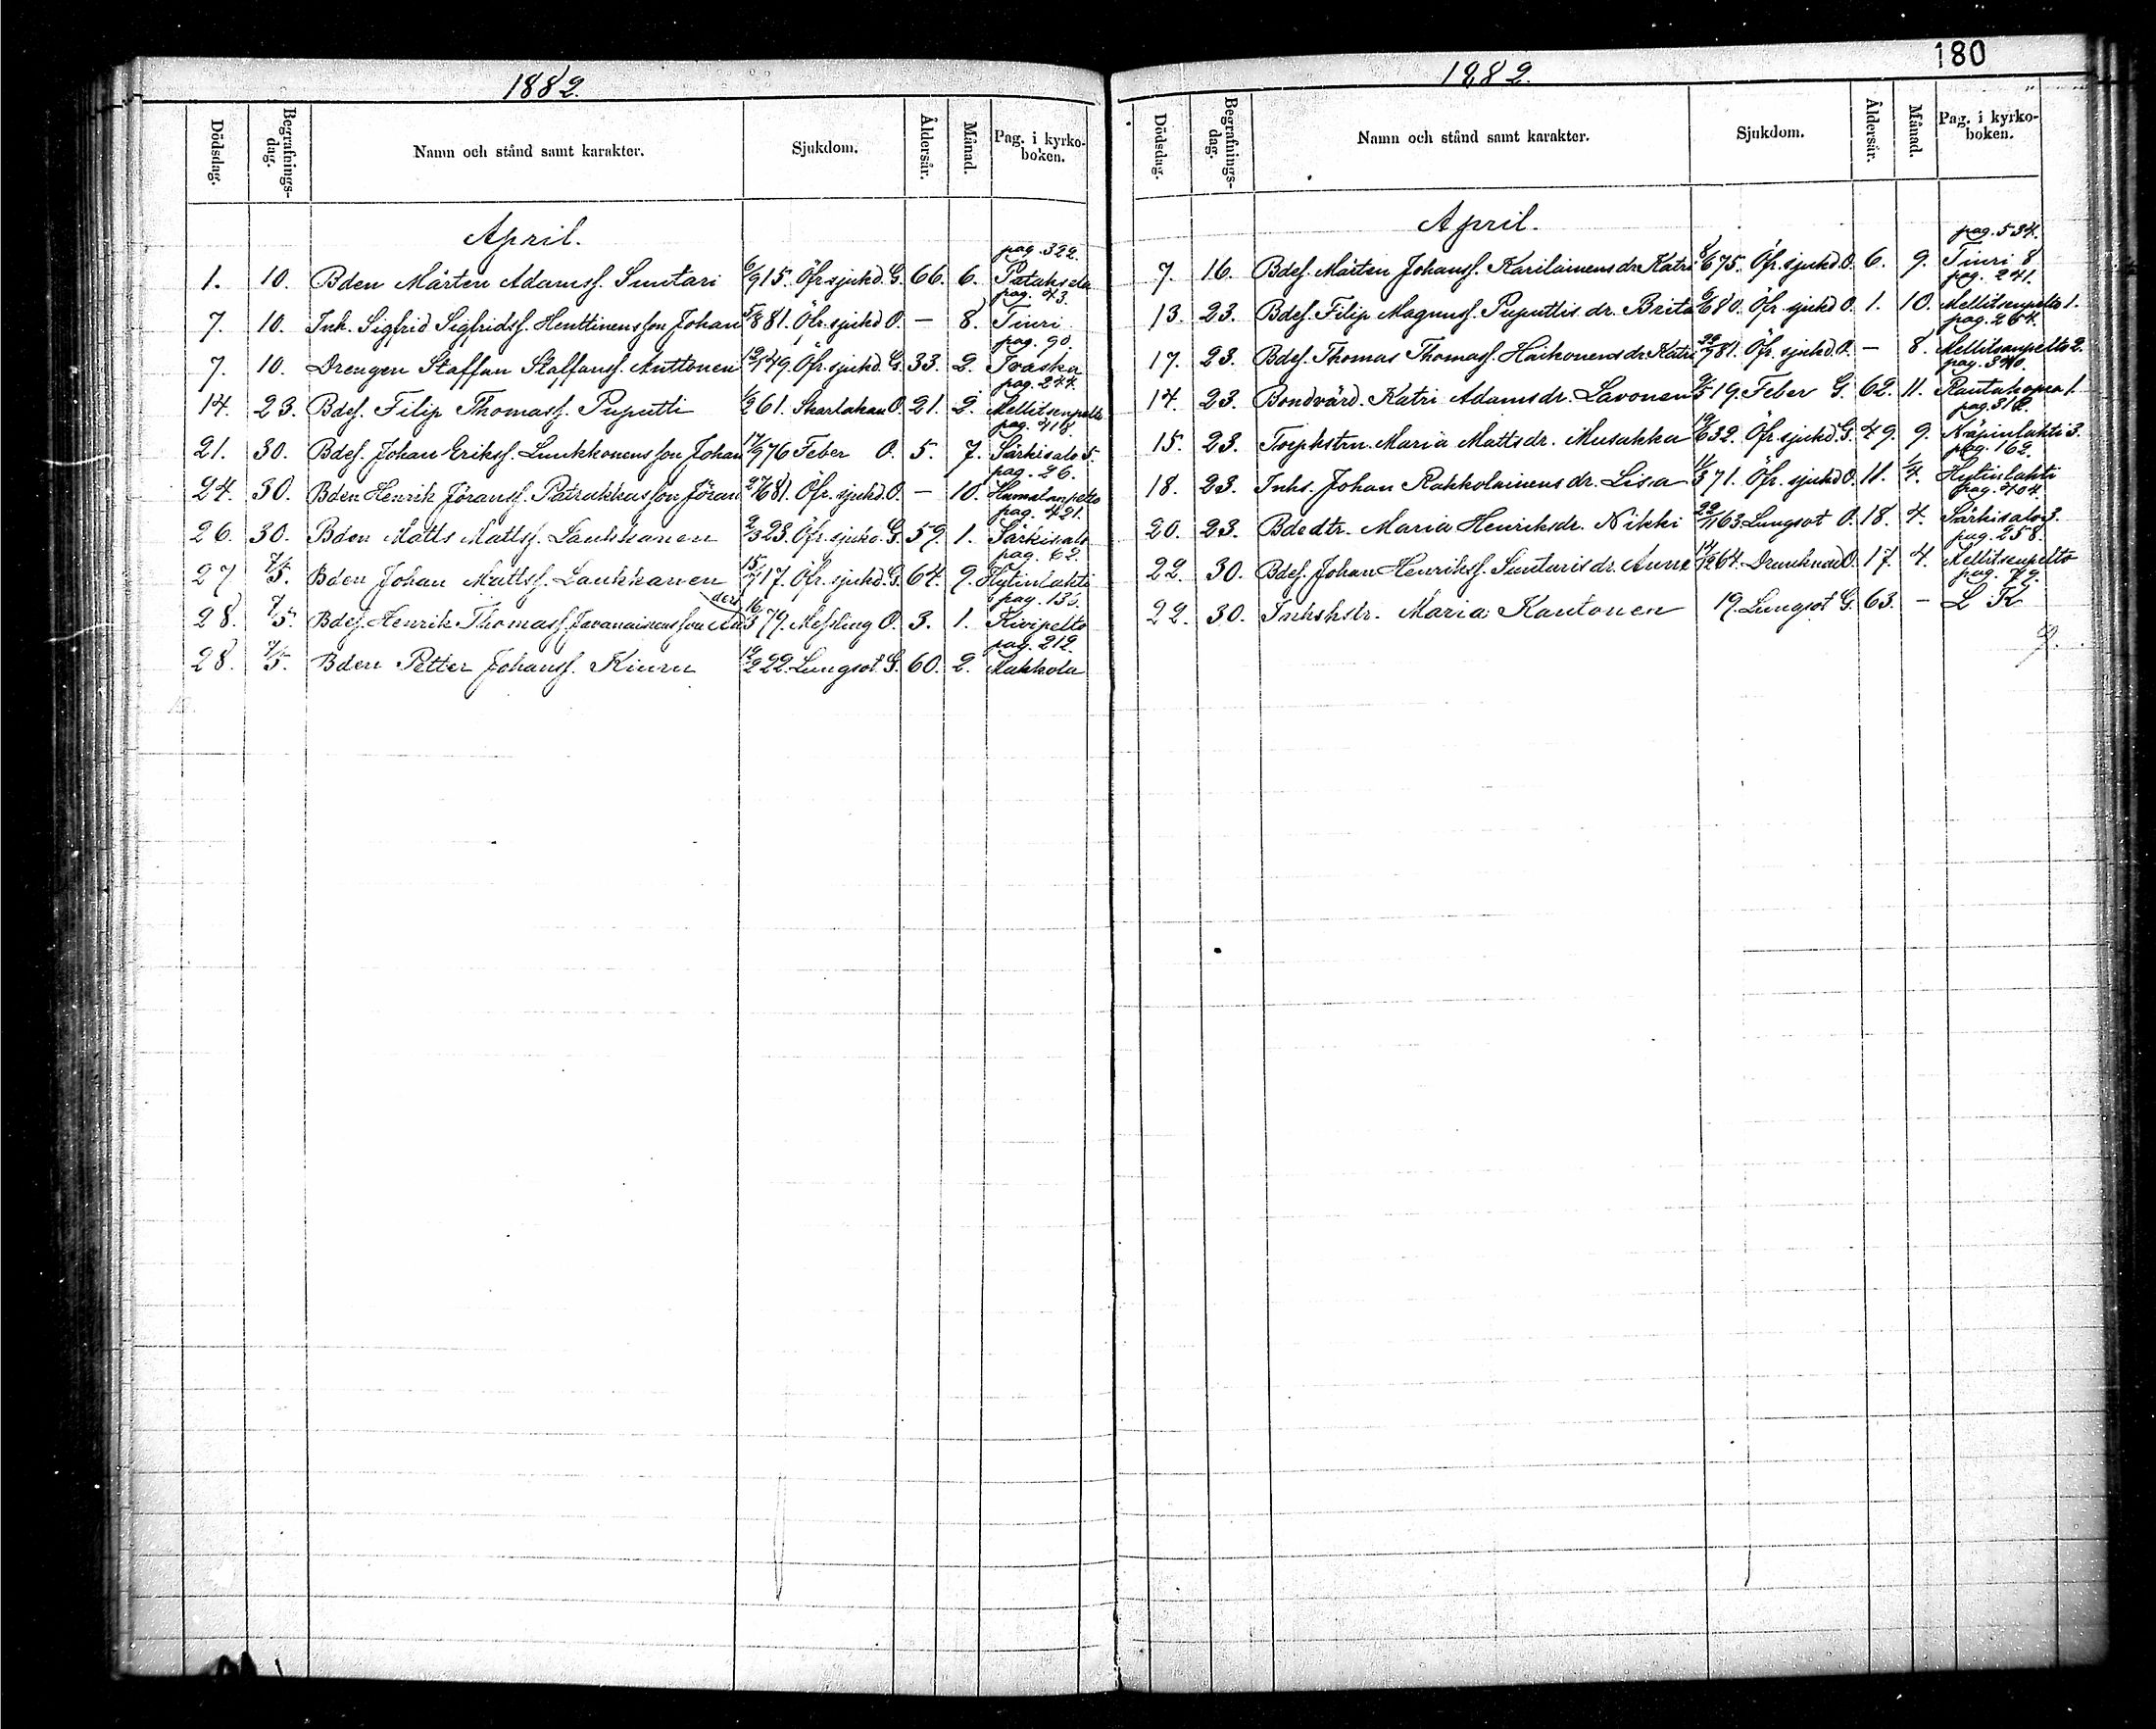 1882.
Dödsdag. Begrafnings-dag. Namn och stånd samt karakter. Sjukdom. Åldersår. Månad. Pag. i kyrko-boken.
April.
pag. 322.
1. 10. Bden Mårten Adamsf. Suutari 6/9 15. Öfr. sjukd. G. 66. 6.
pag. 43.
7. 10. Inh. Sigfrid Sigfridsf. Henttinens son Johan 5/8 81. Öfr. sjukd O. — 8. Tiuri
pag. 90.
7. 10. Drengen Staffan Staffansf. Anttonen 49. Öfr. sjukd. G. 33. 2. Ivaska
pag. 244.
14. 23. Bdef. Filip Thomasf. Puputti 61. Skarlakan O. 21. 2. Mellitsenpelto
pag. 418.
21. 30. Bdef. Johan Eriksf. Luukkonens son Johan 17/9 76 Feber O. 5. 7. Särkisalo 5.
pag. 26.
24. 30. Bden Henrik Jöransf. Patrakkas son Jöran 27/6 81. Öfr. sjukd. O. — 10. Humalanpelto
pag. 421.
26. 30. Bden Matts Mattsf. Laukkanen 2/3 23. Öfr. sjukd. G. 59. 1. Särkisalo
pag. 62.
27 7/5. Bden Johan Mattsf. Laukkanen 15/7 17. Öfr. sjukd. G. 64. 9. Hytinlahti
pag. 136.
28. 7/5. Bdef. Henrik Thomasf. Javanainens son 16/3 79. Messling O. 3. 1. Kivipelto
pag. 212.
28. 7/5. Bden Petter Johansf. Kiuru 12/2 22. Lungsot. G. 60. 2. Makkola
180
1882.
Dödsdag. Begrafnings-dag. Namn och stånd samt karakter. Sjukdom. Åldersår. Månad. Pag. i kyrko-boken.
April.
pag. 534.
7. 16. Bdef. Mårten Johansf. Karilainens dr Katri 75. Öfr. sjukd. O. 6. 9. Tiuri 8
pag. 241.
13. 23. Bdef. Filip Magnusf. Puputtis dr. Brita 80. Öfr. sjukd O. 1. 10. Mellitsenpelto 1.
pag. 264.
17. 23. Bdef. Thomas Thomasf. Haikonens dr Katri 22/7 81. Öfr. sjukd. O. — 8. Mellitsenpelto 2.
pag. 340.
14. 23. Bondvärd. Katri Adamsdr. Lavonen 19. Feber G. 62. 11. Rautakopra 1.
15. 23. Torpkstrn. Maria Mattsdr. Musakka 19/6 32. Öfr. sjukd. G. 49. 9. Näpinlahti 3.
pag. 162.
18. 23. Inhs. Johan Rakkolainens dr. Lisa 11/3 71. Öfr. sjukd O. 11. 1/4. Hytinlahti
pag. 404.
20. 23. Bdedtr. Maria Henriksdr. Nikki 22/11 63 Lungsot O. 18. 4. Särkisalo 3.
pag. 258.
22. 30. Bdef. Johan Henriksf. Suutaris dr. Anna 14/12 64. Drunknad O. 17. 4. Mellitsenpelto
pag. 72.
22. 30. Inhshstr. Maria Kautonen 19. Lungsot G. 63. — L K